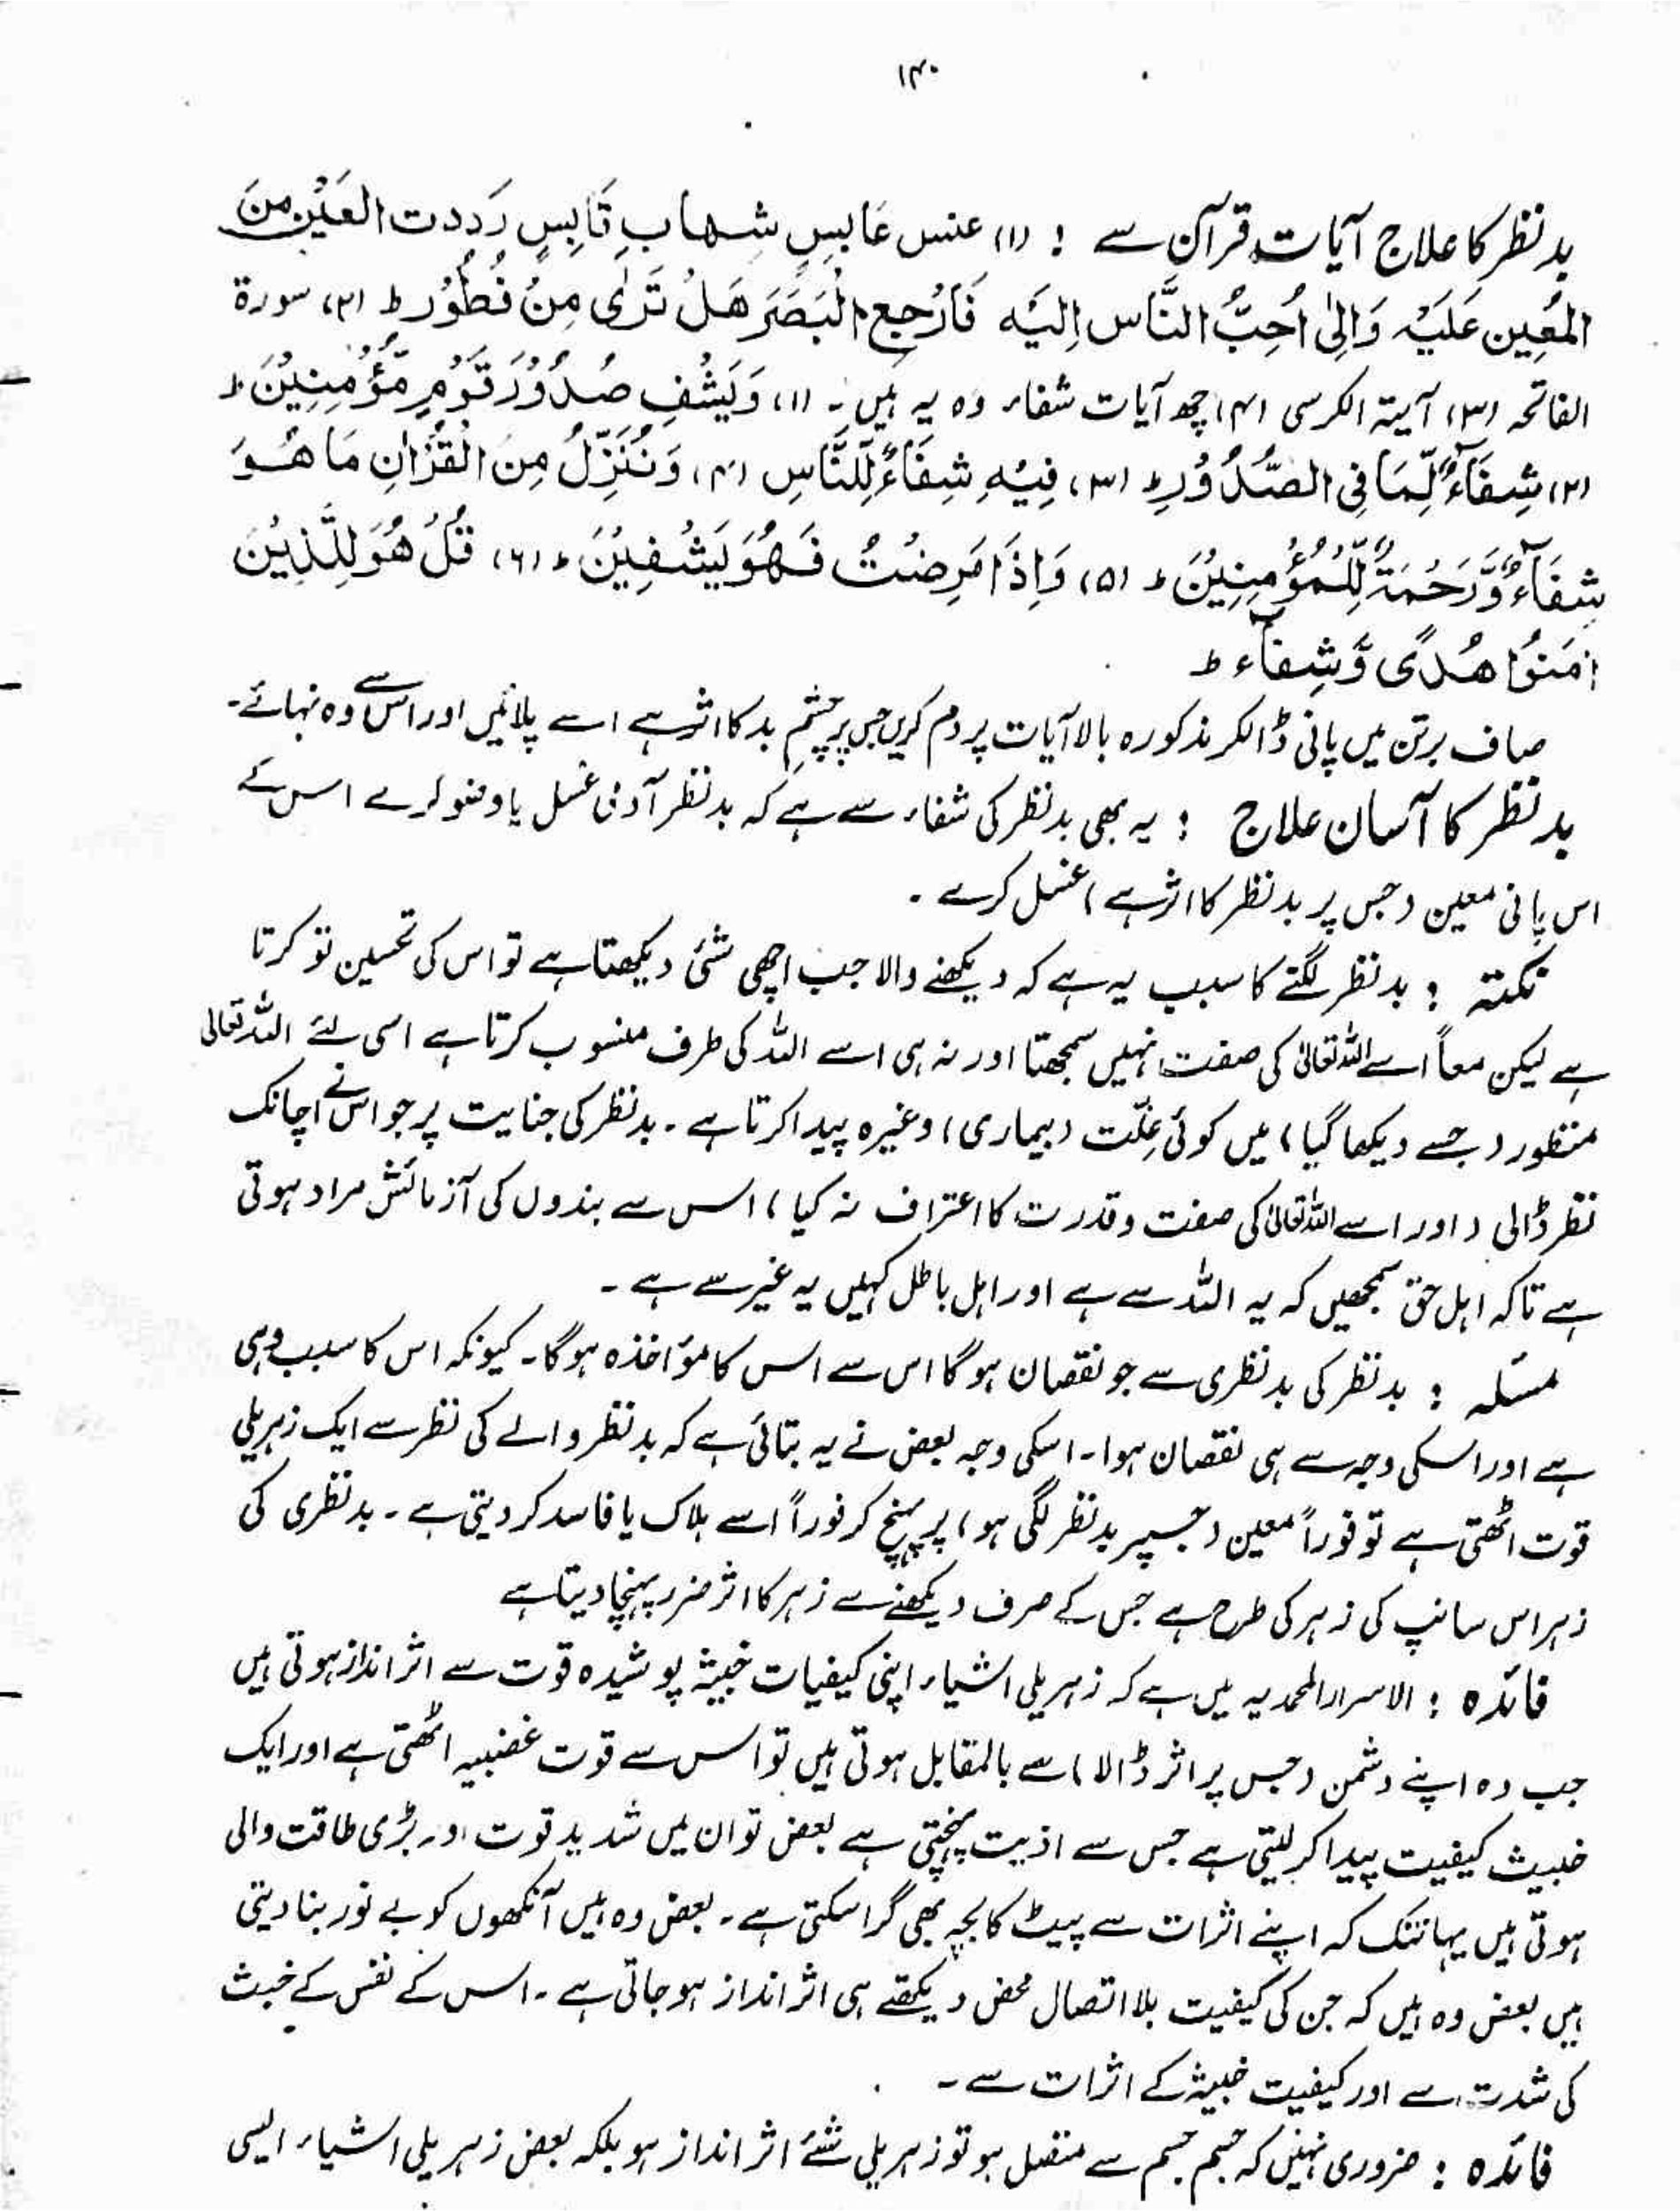 ۱۴۰
بدنظر کا علاج آیات قرآن سے : (۱) عبس عَابِسٍ شِهابِ قَابِسٍ رَددت العَيْن مِنَ
المُعِين عَلَيْہ وَاِلىٰ اُحِبُّ النَّاس اِلَیْہ فَارْجِعِ الْبَصَرَ هَلْ تَرٰى مِنْ فُطُوْرٍ ط (۲) سورۃ
الفاتحہ (۳) آیۃ الکرسی (۴) چھ آیات شفاء وہ یہ ہیں ۔ (۱) وَيَشْفِ صُدُوْرَ قَوْمٍ مُّؤْمِنِيْنَ ط
(۲) شِفَآءٌ لِّمَا فِی الصُّدُوْرِ ط (۳) فِيْهِ شِفَآءٌ لِّلنَّاسِ (۴) وَنُنَزِّلُ مِنَ الْقُرْاٰنِ مَا هُوَ
شِفَآءٌ وَّرَحْمَةٌ لِّلْمُؤْمِنِيْنَ ط (۵) وَاِذَا مَرِضْتُ فَهُوَ يَشْفِيْنَ ط (۶) قُلْ هُوَ لِلَّذِيْنَ
اٰمَنُوْا هُدًى وَّشِفَآء ط
صاف برتن میں پانی ڈالکر مذکورہ بالا آیات پر دم کریں جس پر چشم بد کا اثر ہے اسے پلائیں اور اس سے وہ نہائے۔
بدنظر کا آسان علاج : یہ بھی بدنظر کی شفاء سے ہے کہ بدنظر آدمی غسل یا وضو کرے اس کے
اس پانی معین (جس پر بدنظر کا اثر ہے) غسل کرے ۔
نکتہ : بدنظر لگنے کا سبب یہ ہے کہ دیکھنے والا جب اچھی شئی دیکھتا ہے تو اس کی تحسین تو کرتا
ہے لیکن معاً اسے اللہ تعالیٰ کی صفت نہیں سمجھتا اور نہ ہی اسے اللہ کی طرف منسوب کرتا ہے اسی لئے اللہ تعالی
منظور (جسے دیکھا گیا) میں کوئی عِلّت (بیماری) وغیرہ پیدا کرتا ہے ۔ بدنظر کی جنایت پر جو اس نے اچانک
نظر ڈالی (اور اسے اللہ تعالیٰ کی صفت و قدرت کا اعتراف نہ کیا) اس سے بندوں کی آزمائش مراد ہوتی
ہے تاکہ اہل حق سمجھیں کہ یہ اللہ سے ہے اور اہل باطل کہیں یہ غیر سے ہے ۔
مسئلہ : بدنظر کی بدنظری سے جو نقصان ہوگا اس سے اس کا مؤاخذہ ہوگا۔ کیونکہ اس کا سبب وہی
ہے اور اسکی وجہ سے ہی نقصان ہوا۔ اسکی وجہ بعض نے یہ بتائی ہے کہ بدنظر والے کی نظر سے ایک زہریلی
قوت اٹھتی ہے تو فوراً معین (جسپر بدنظر لگی ہو) پر پہنچ کر فوراً اسے ہلاک یا فاسد کر دیتی ہے ۔ بدنظری کی
زہر اس سانپ کی زہر کی طرح ہے جس کے صرف دیکھنے سے زہر کا اثر ضرر پہنچا دیتا ہے
فائدہ : الاسرار المحمدیہ میں ہے کہ زہریلی اشیاء اپنی کیفیات خبیثہ پوشیدہ قوت سے اثر انداز ہوتی ہیں
جب وہ اپنے دشمن (جس پر اثر ڈالا) سے بالمقابل ہوتی ہیں تو اس سے قوت غضبیہ اٹھتی ہے اور ایک
خبیث کیفیت پیدا کر لیتی ہے جس سے اذیت پہنچتی ہے بعض تو ان میں شدید قوت اور بڑی طاقت والی
ہوتی ہیں یہانتک کہ اپنے اثرات سے پیٹ کا بچہ بھی گرا سکتی ہے۔ بعض وہ ہیں آنکھوں کو بے نور بنا دیتی
ہیں بعض وہ ہیں کہ جن کی کیفیت بلا اتصال محض دیکھتے ہی اثر انداز ہو جاتی ہے ۔ اس کے نفس کے خبث
کی شدت سے اور کیفیت خبیثہ کے اثرات سے ۔
فائدہ : ضروری نہیں کہ جسم جسم سے متصل ہو تو زہریلی شئے اثر انداز ہو بلکہ بعض زہریلی اشیاء ایسی